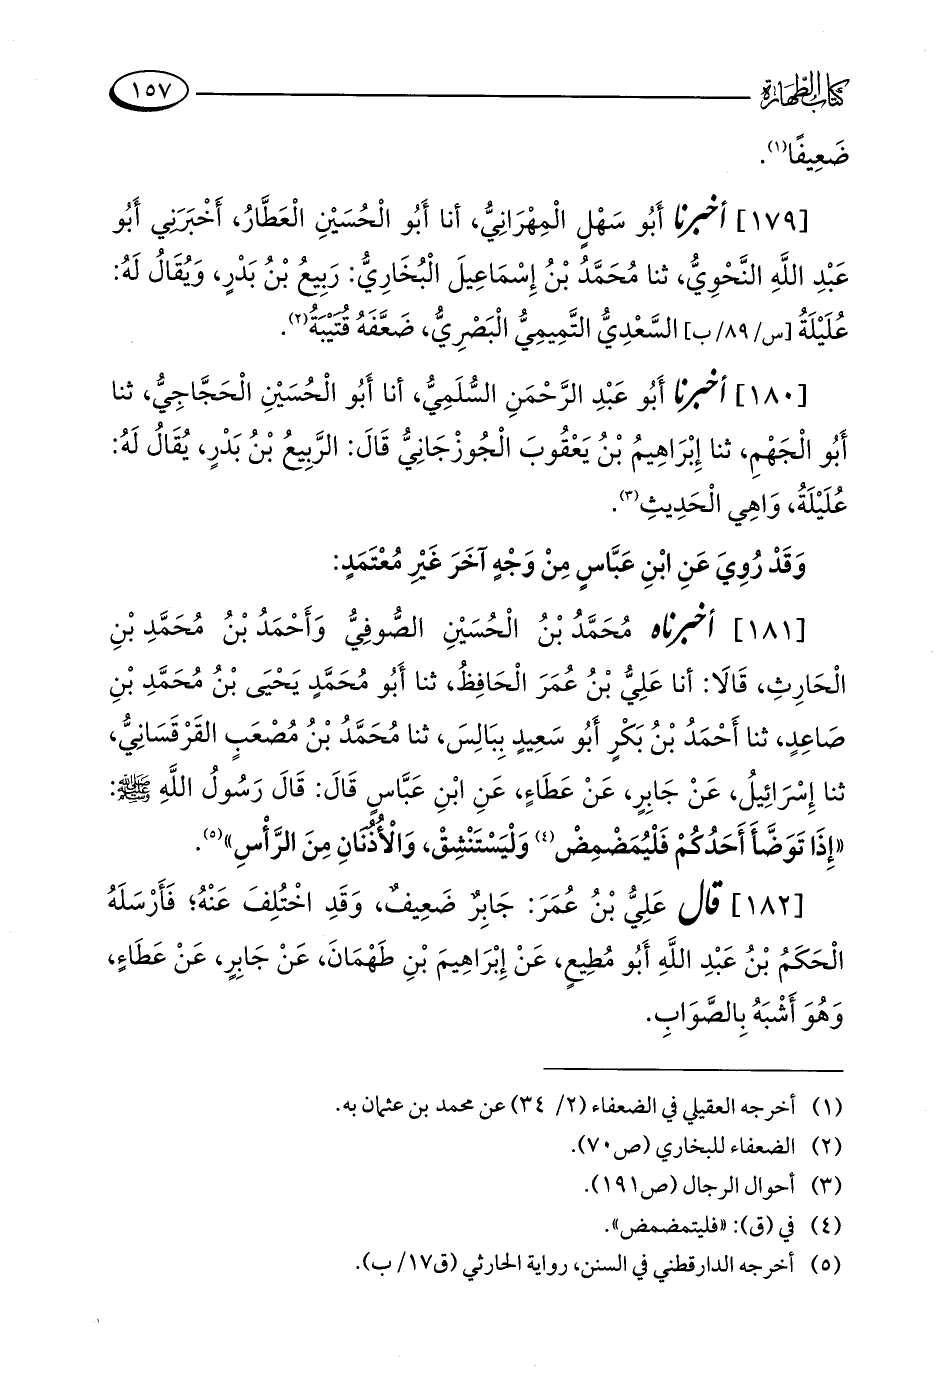 كتاب الطهارة ١٥٧
ضَعِيفًا(١).
[١٧٩] أخبرنا أَبُو سَهْلٍ الْمِهْرَانِيُّ، أنا أَبُو الْحُسَيْنِ الْعَطَّارُ، أَخْبَرَنِي أَبُو
عَبْدِ اللَّهِ النَّحْوِيُّ، ثنا مُحَمَّدُ بْنُ إِسْمَاعِيلَ الْبُخَارِيُّ: رَبِيعُ بْنُ بَدْرٍ، وَيُقَالُ لَهُ:
عُلَيْلَةُ [س/ ٨٩/ ب] السَّعْدِيُّ التَّمِيمِيُّ الْبَصْرِيُّ، ضَعَّفَهُ قُتَيْبَةُ(٢).
[١٨٠] أخبرنا أَبُو عَبْدِ الرَّحْمَنِ السُّلَمِيُّ، أنا أَبُو الْحُسَيْنِ الْحَجَّاجِيُّ، ثنا
أَبُو الْجَهْمِ، ثنا إِبْرَاهِيمُ بْنُ يَعْقُوبَ الْجُوزْجَانِيُّ قَالَ: الرَّبِيعُ بْنُ بَدْرٍ، يُقَالُ لَهُ:
عُلَيْلَةُ، وَاهِي الْحَدِيثِ(٣).
وَقَدْ رُوِيَ عَنِ ابْنِ عَبَّاسٍ مِنْ وَجْهٍ آخَرَ غَيْرِ مُعْتَمَدٍ:
[١٨١] أخبرناه مُحَمَّدُ بْنُ الْحُسَيْنِ الصُّوفِيُّ وَأَحْمَدُ بْنُ مُحَمَّدِ بْنِ
الْحَارِثِ، قَالَا: أنا عَلِيُّ بْنُ عُمَرَ الْحَافِظُ، ثنا أَبُو مُحَمَّدٍ يَحْيَى بْنُ مُحَمَّدِ بْنِ
صَاعِدٍ، ثنا أَحْمَدُ بْنُ بَكْرٍ أَبُو سَعِيدٍ بِبَالِسَ، ثنا مُحَمَّدُ بْنُ مُصْعَبٍ القَرْقَسَانِيُّ،
ثنا إِسْرَائِيلُ، عَنْ جَابِرٍ، عَنْ عَطَاءٍ، عَنِ ابْنِ عَبَّاسٍ قَالَ: قَالَ رَسُولُ اللَّهِ ﷺ:
«إِذَا تَوَضَّأَ أَحَدُكُمْ فَلْيُمَضْمِضْ(٤) وَلْيَسْتَنْشِقْ، وَالْأُذُنَانِ مِنَ الرَّأْسِ»(٥).
[١٨٢] قال عَلِيُّ بْنُ عُمَرَ: جَابِرٌ ضَعِيفٌ، وَقَدِ اخْتُلِفَ عَنْهُ؛ فَأَرْسَلَهُ
الْحَكَمُ بْنُ عَبْدِ اللَّهِ أَبُو مُطِيعٍ، عَنْ إِبْرَاهِيمَ بْنِ طَهْمَانَ، عَنْ جَابِرٍ، عَنْ عَطَاءٍ،
وَهُوَ أَشْبَهُ بِالصَّوَابِ.
(١) أخرجه العقيلي في الضعفاء (٢/ ٣٤) عن محمد بن عثمان به.
(٢) الضعفاء للبخاري (ص٧٠).
(٣) أحوال الرجال (ص١٩١).
(٤) في (ق): «فليتمضمض».
(٥) أخرجه الدارقطني في السنن، رواية الحارثي (ق١٧/ ب).